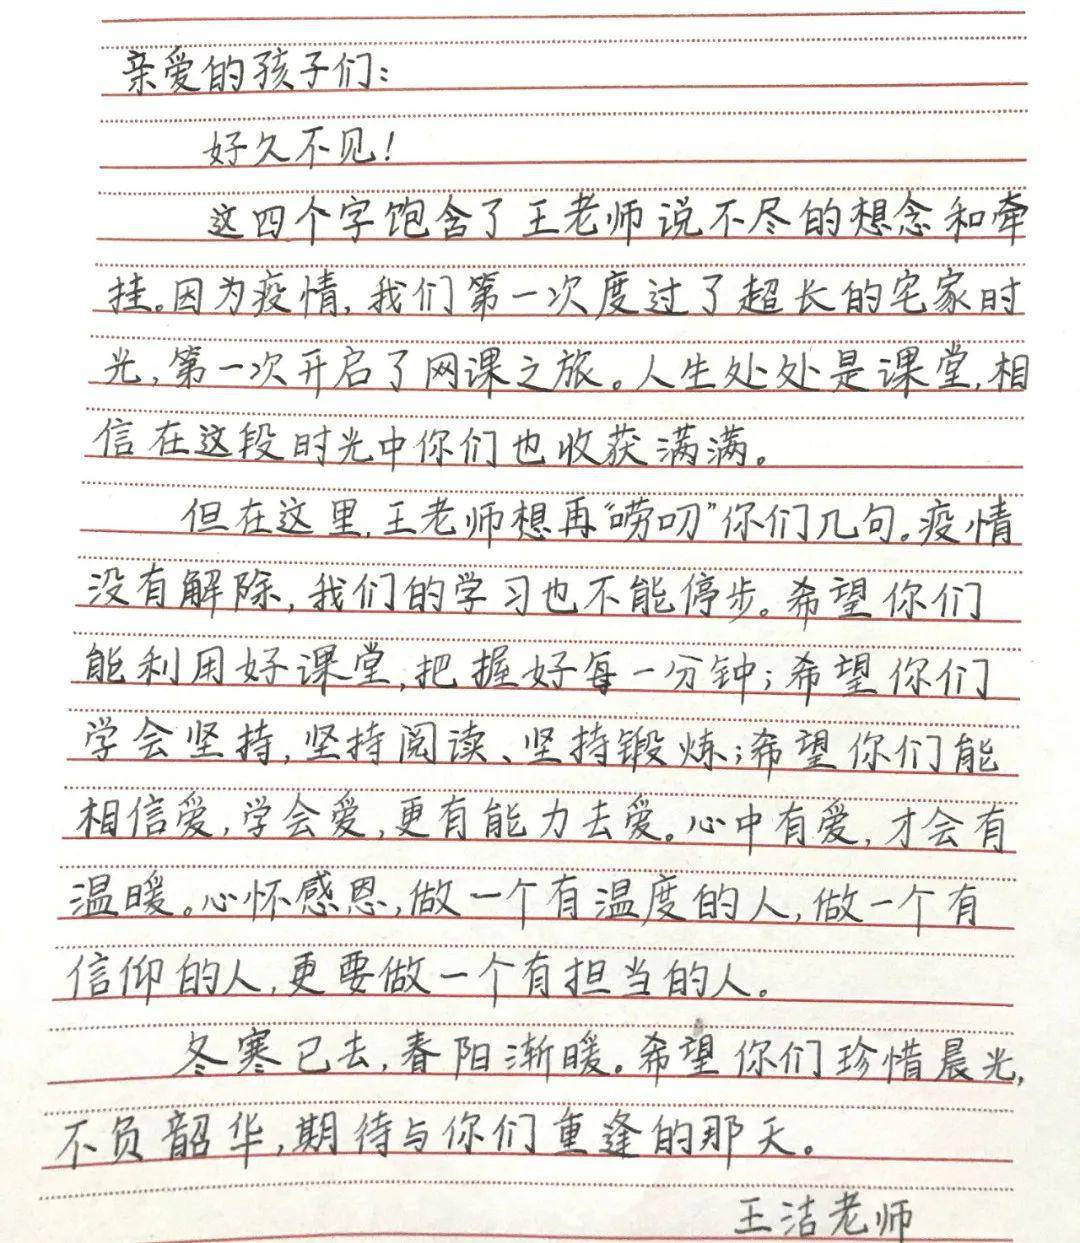 亲爱的孩子们:
好久不见!
这四个字饱含了王老师说不尽的想念和牵
挂。因为疫情,我们第一次度过了超长的宅家时
光,第一次开启了网课之旅。人生处处是课堂,相
信在这段时光中你们也收获满满。
但在这里,王老师想再“唠叨”你们几句。疫情
没有解除,我们的学习也不能停步。希望你们
能利用好课堂,把握好每一分钟;希望你们
学会坚持,坚持阅读、坚持锻炼;希望你们能
相信爱,学会爱,更有能力去爱。心中有爱,才会有
温暖。心怀感恩,做一个有温度的人,做一个有
信仰的人,更要做一个有担当的人。
冬寒已去,春阳渐暖。希望你们珍惜晨光,
不负韶华,期待与你们重逢的那天。
王洁老师